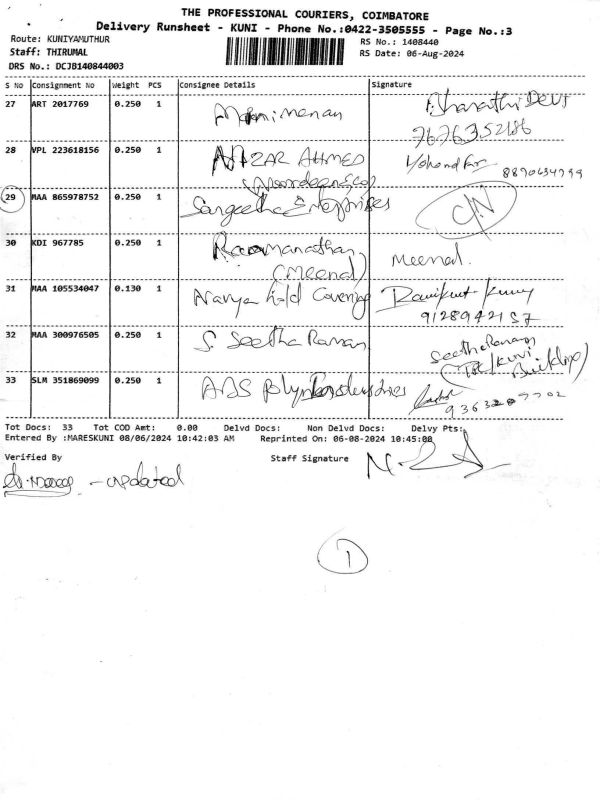 THE PROFESSIONAL COURIERS, COIMBATORE
Delivery Runsheet - KUNI - Phone No.:0422-3505555 - Page No.:3
Route: KUNIYAMUTHUR RS No.: 1408440
Staff: THIRUMAL RS Date: 06-Aug-2024
DRS No.: DCJB140844003
S No Consignment No Weight PCS Consignee Details Signature
27 ART 2017769 0.250 1 Mani menan Bharathi Devi
7676352186
28 VPL 223618156 0.250 1 NIZAR AHMED
29 MAA 865978752 0.250 1 Sangeetha Enterprises C/N
30 KDI 967785 0.250 1 Ramanathan Meenal
(Meenal)
31 MAA 105534047 0.130 1 Navya Gold Covering
9128942157
32 MAA 300976505 0.250 1 S. Seetha Raman Seetha Raman
33 SLM 351869099 0.250 1 ABS
Tot Docs: 33 Tot COD Amt: 0.00 Delvd Docs: Non Delvd Docs: Delvy Pts:
Entered By :MARESKUNI 08/06/2024 10:42:03 AM Reprinted On: 06-08-2024 10:45:00
Verified By Staff Signature
- updated
1